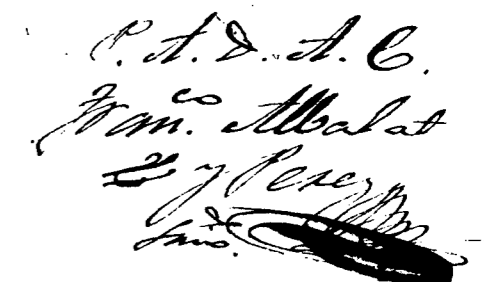 P. A. D. A. C.
Fran.co Albalat
y Perez